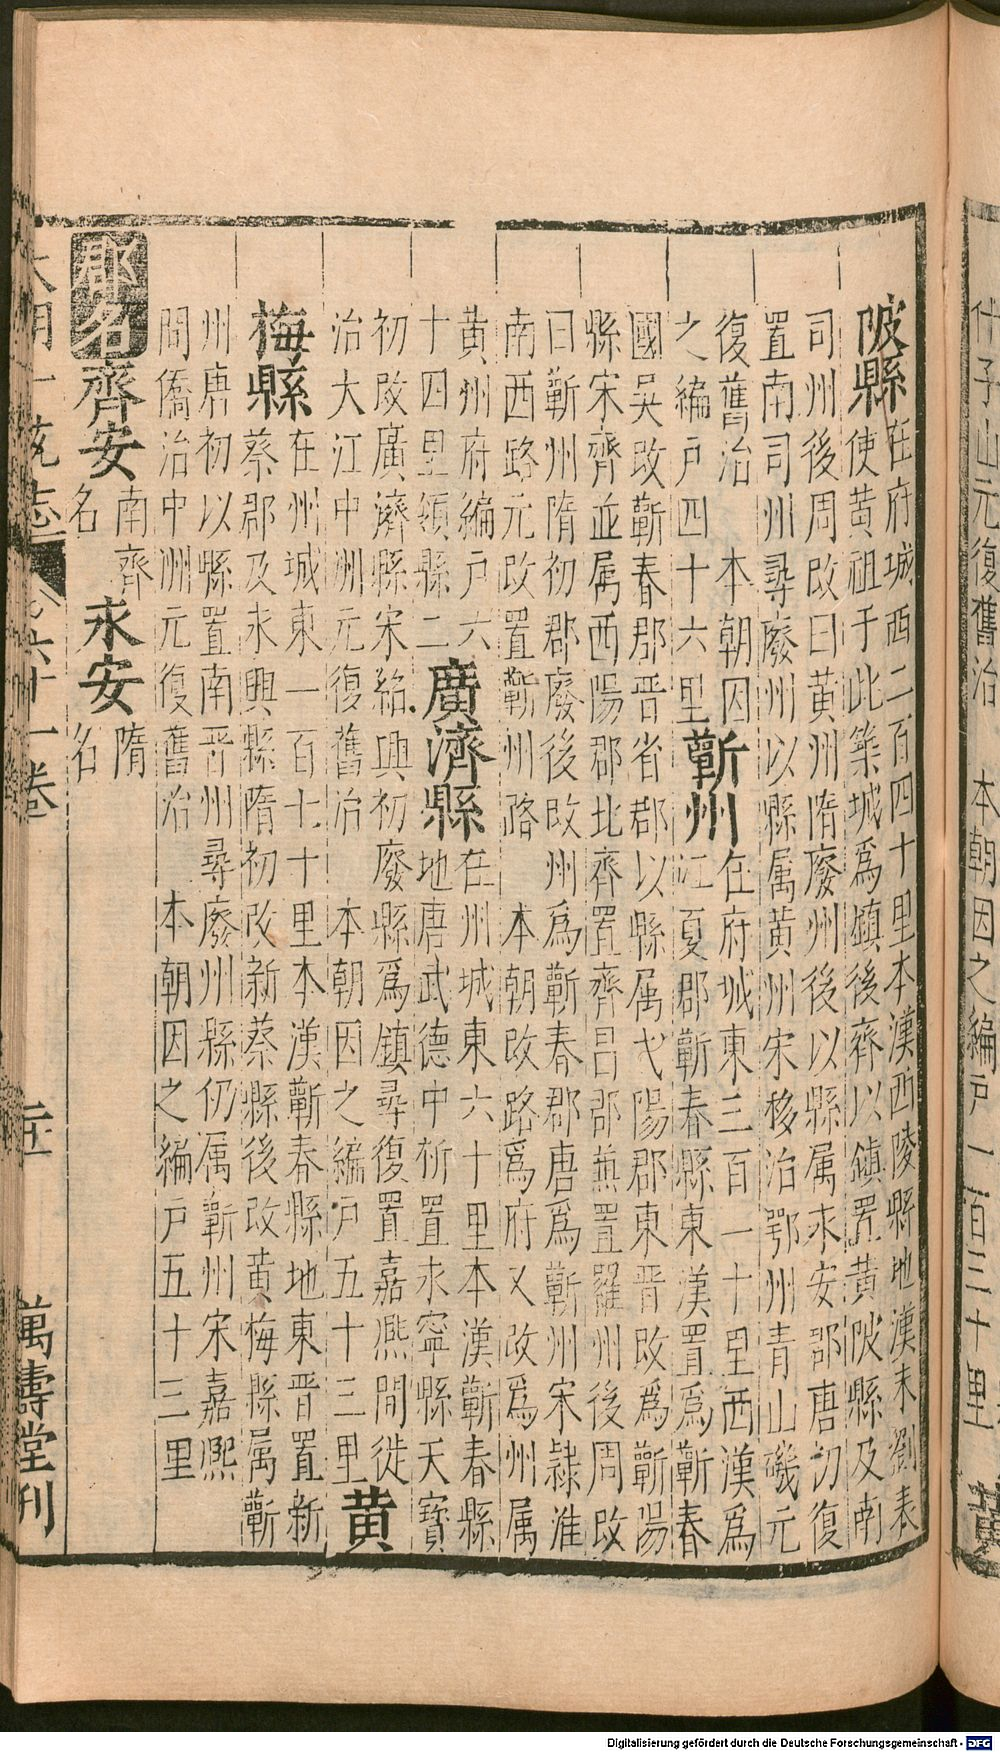 什子山元復舊治 本朝因之編戶一百三十里 黃
陂縣
在府城西二百四十里本漢西陵縣地漢末劉表
使黃祖于此築城為鎮後齊以鎮置黃陂縣及南
司州後周改曰黃州隋廢州後以縣属永安郡唐初復
置南司州尋廢州以縣属黃州宋移治鄂州青山磯元
復舊治 本朝因
之編戶四十六里
蘄州
在府城東三百一十里西漢為
江夏郡蘄春縣東漢置為蘄春
國吳改蘄春郡晉省郡以縣属弋陽郡東晉改為蘄陽
縣宋齊並属西陽郡北齊置齊昌郡兼置羅州後周改
曰蘄州隋初郡廢後改州為蘄春郡唐為蘄州宋隷淮
南西路元改置蘄州路 本朝改路為府又改為州属
黃州府編戶六
十四里領縣二
廣濟縣
在州城東六十里本漢蘄春縣
地唐武德中析置永寧縣天寶
初改廣濟縣宋紹興初廢縣為鎮尋復置嘉熈間徙
治大江中洲元復舊治 本朝因之編戶五十三里
黃
梅縣
在州城東一百七十里本漢蘄春縣地東晉置新
蔡郡及永興縣隋初改新蔡縣後改黃梅縣属蘄
州唐初以縣置南晉州尋廢州縣仍属蘄州宋嘉熈
間僑治中洲元復舊治 本朝因之編戶五十三里
郡名
齊安
南齊
名
永安
隋
名
大明一 志 六十一卷 萬壽堂刊
Digitalisierung gefördert durch die Deutsche Forschungsgemeinschaft - DFG